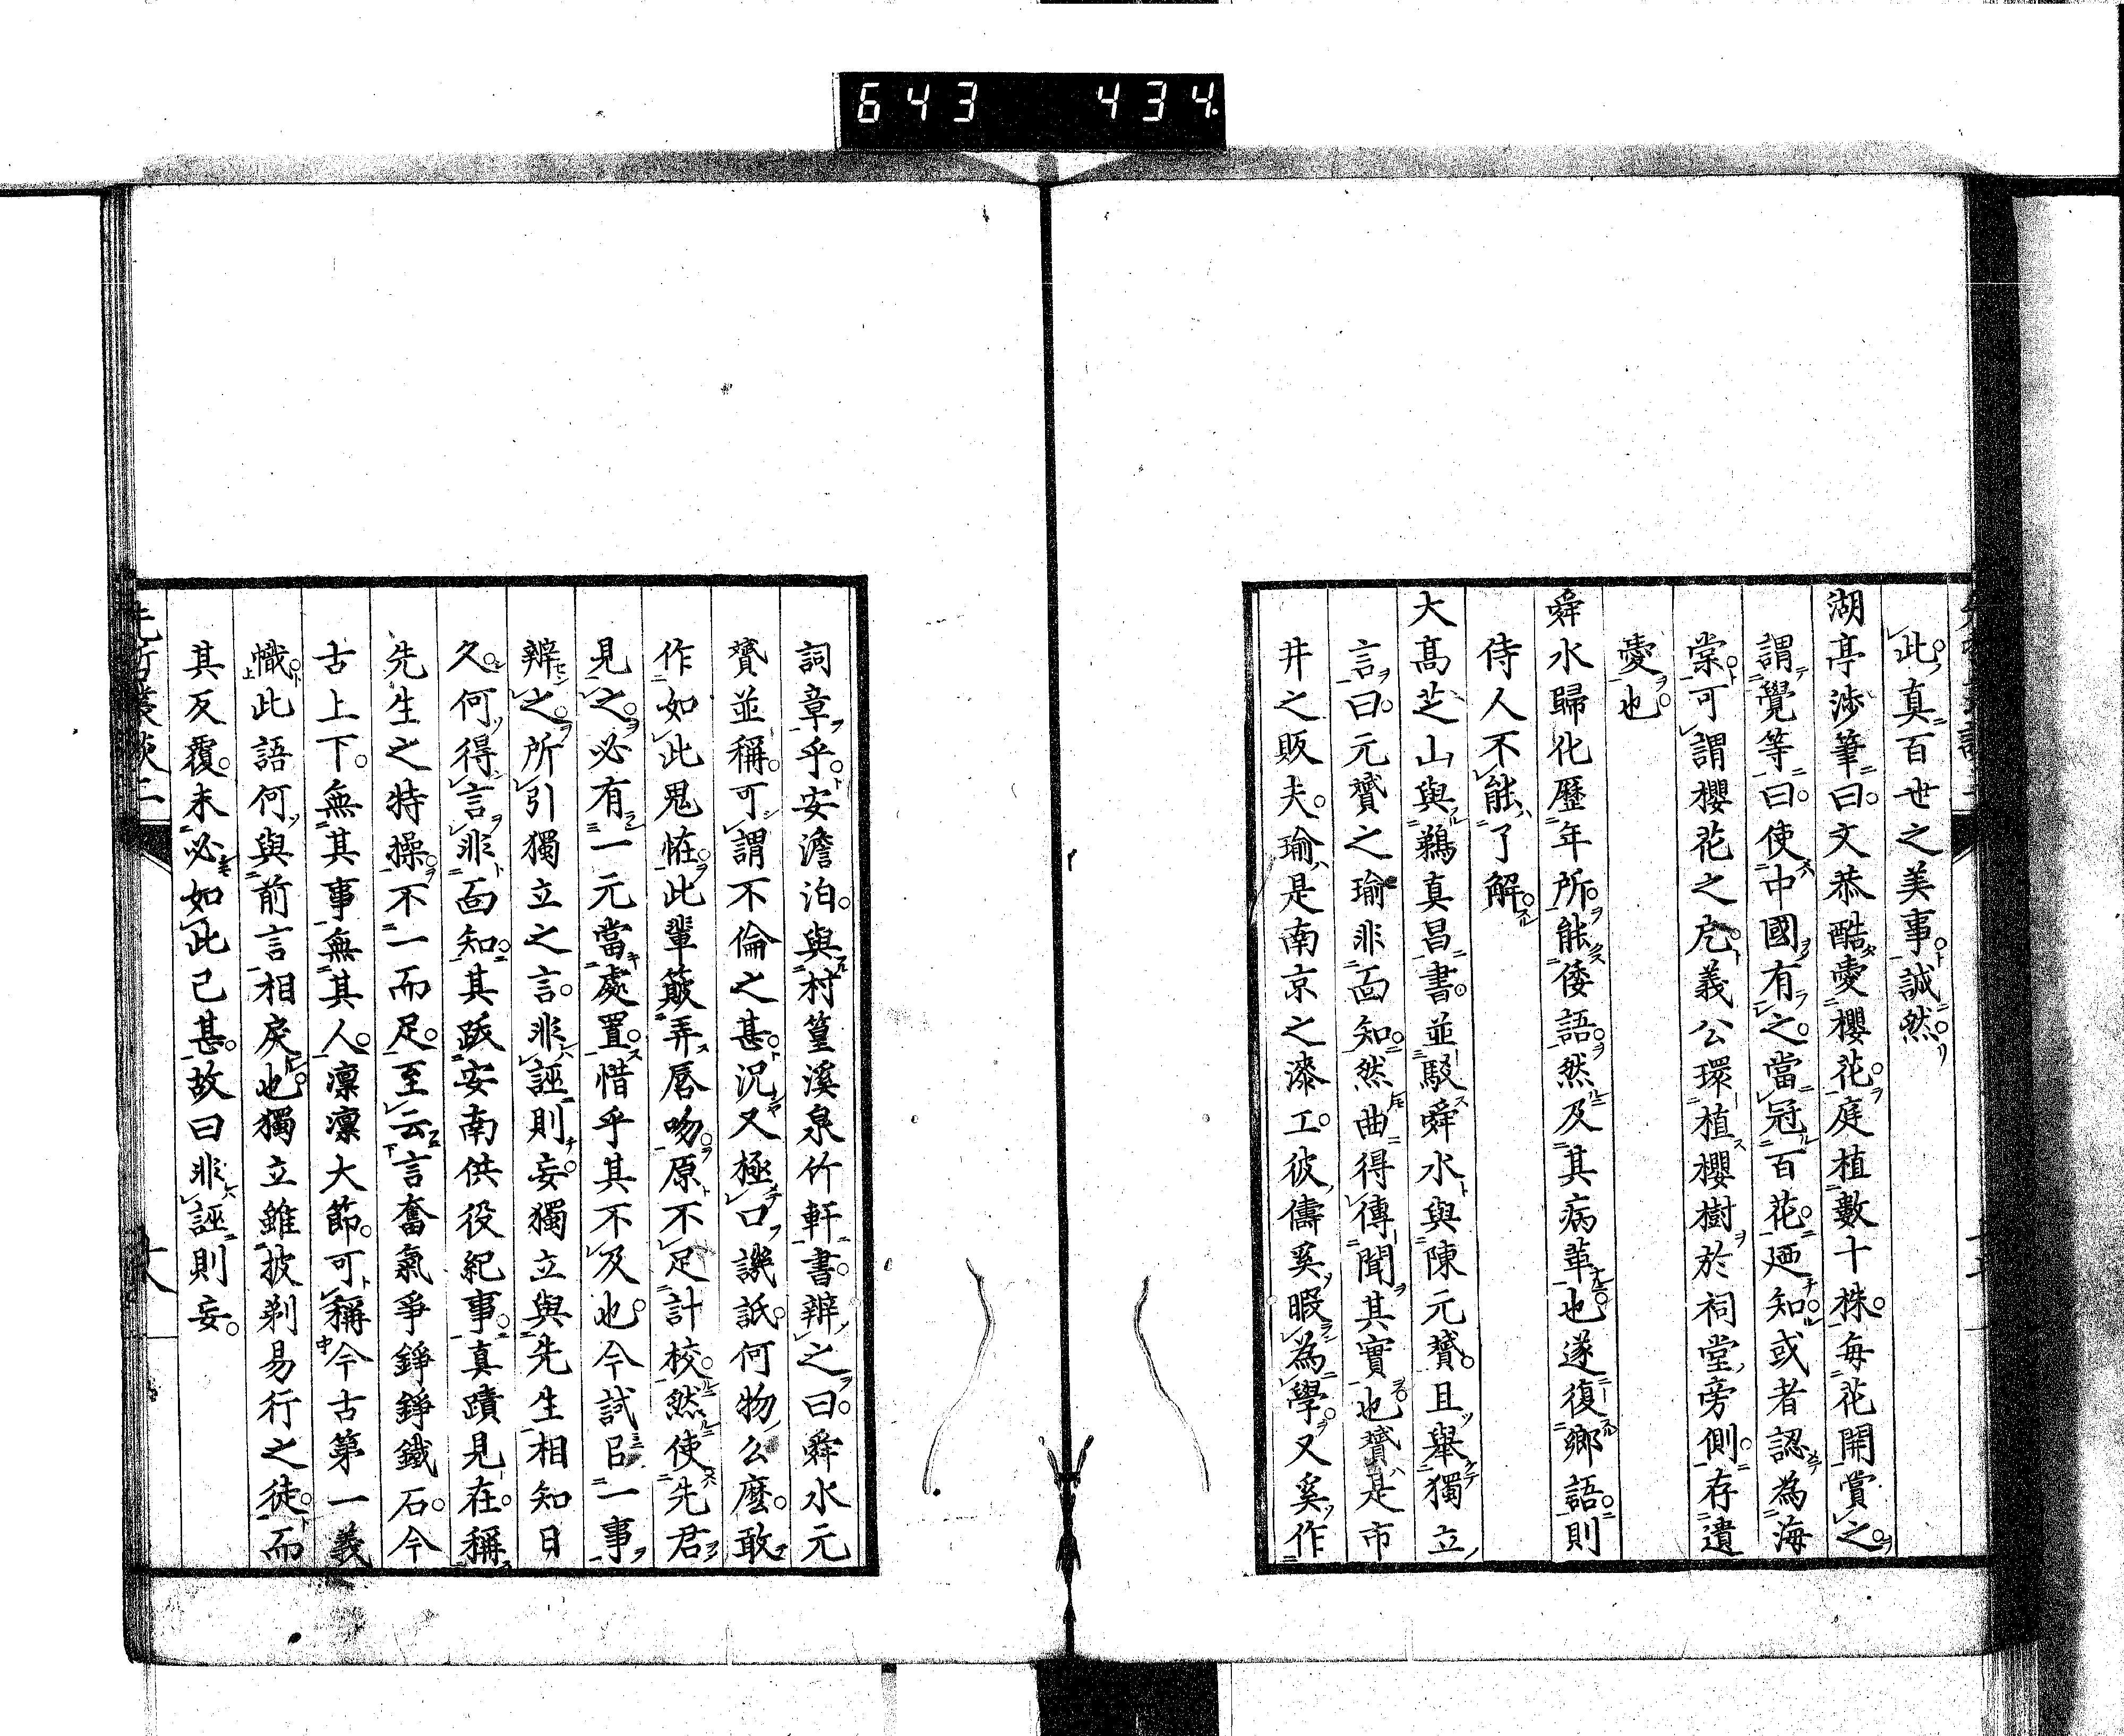 643 434
此真百世之美事誠然
湖亭渉筆曰文恭酷愛櫻花庭植數十株每花開賞之
謂覺等曰使中國有之當冠百花廼知或者認為海
棠可謂櫻花之厄義公環植櫻樹於祠堂旁側存遺
愛也
舜水歸化歷年所能倭語然及其病革也遂復鄉語則
侍人不能了解
大高芝山與鵜真昌書並駁舜水與陳元贇且舉獨立
言曰元贇之瑜非面知然曲得傳聞其實也贇是市
井之販夫瑜是南京之漆工彼儔奚暇為學又奚作
詞章乎安澹泊與村篁溪泉竹軒書辨之曰舜水元
贇並稱可謂不倫之甚況又極口譏詆何物么麼敢
作如此鬼怪此輩簸弄唇吻原不足計校然使先君
見之必有一元當處置惜乎其不及也今試白一事
辨之所引獨立之言非誣則妄獨立與先生相知日
久何得言非面知其跋安南供役紀事真蹟見在稱
先生之特操不一而足至云言奮氣爭錚錚鐵石今
古上下無其事無其人凛凛大節可稱今古第一義
幟此語何與前言相戾也獨立雖披剃易行之徒而
其反覆未必如此已甚故曰非誣則妄
先哲叢談二